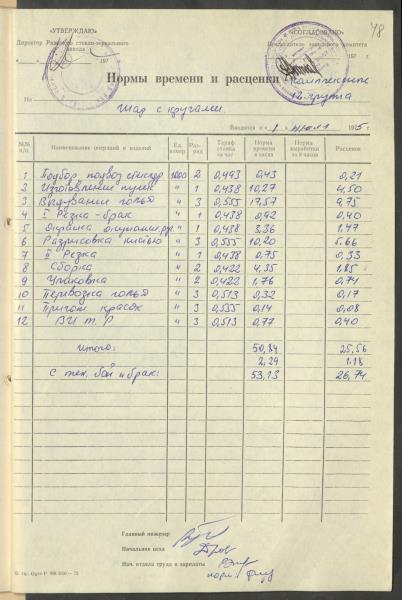 48
«УТВЕРЖДАЮ»
«СОГЛАСОВАНО»
Директор Рижского стекло-зеркального завода
Председатель заводского комитета
197
197
Нормы времени и расценки
Комплексные
На
Шар с кругами
12 группа
Вводится с 1 июля 1975 г.
№№ п/п. Наименование операций и изделий Ед. измер. Раз-ряд Тариф. ставка за час Норма времени в часах Норма выработки за 8 часов Расценок
1 Подбор, подвоз 1000 2 0,493 0,43 0,21
2 Изготовление пулек " 1 0,438 10,27 4,50
3 Выдувание голья " 3 0,555 17,57 9,75
4 I Резка - брак " 1 0,438 0,92 0,40
5 Окраска " 1 0,438 3,36 1,47
6 Разрисовка кистью " 3 0,555 10,20 5,66
7 II Резка " 1 0,438 0,75 0,33
8 Сборка " 2 0,422 4,35 1,85
9 Упаковка " 2 0,422 1,76 0,74
10 Перевозка голья " 3 0,513 0,32 0,17
11 Пригот. красок " 3 0,555 0,14 0,08
12 ВИТР " 3 0,513 0,77 0,40
Итого: 50,84 25,56
2,29 1.18
С тех. бой и брак: 53,13 26,74
Главный инженер
Начальник цеха
Нач. отдела труда и зарплаты